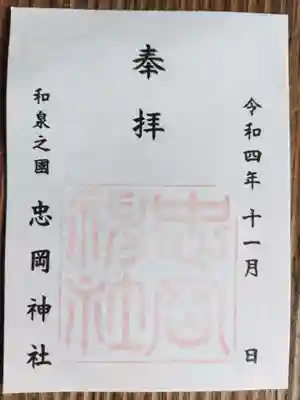 令和四年十一月　日
奉拝
和泉之國　忠岡神社
忠岡神社